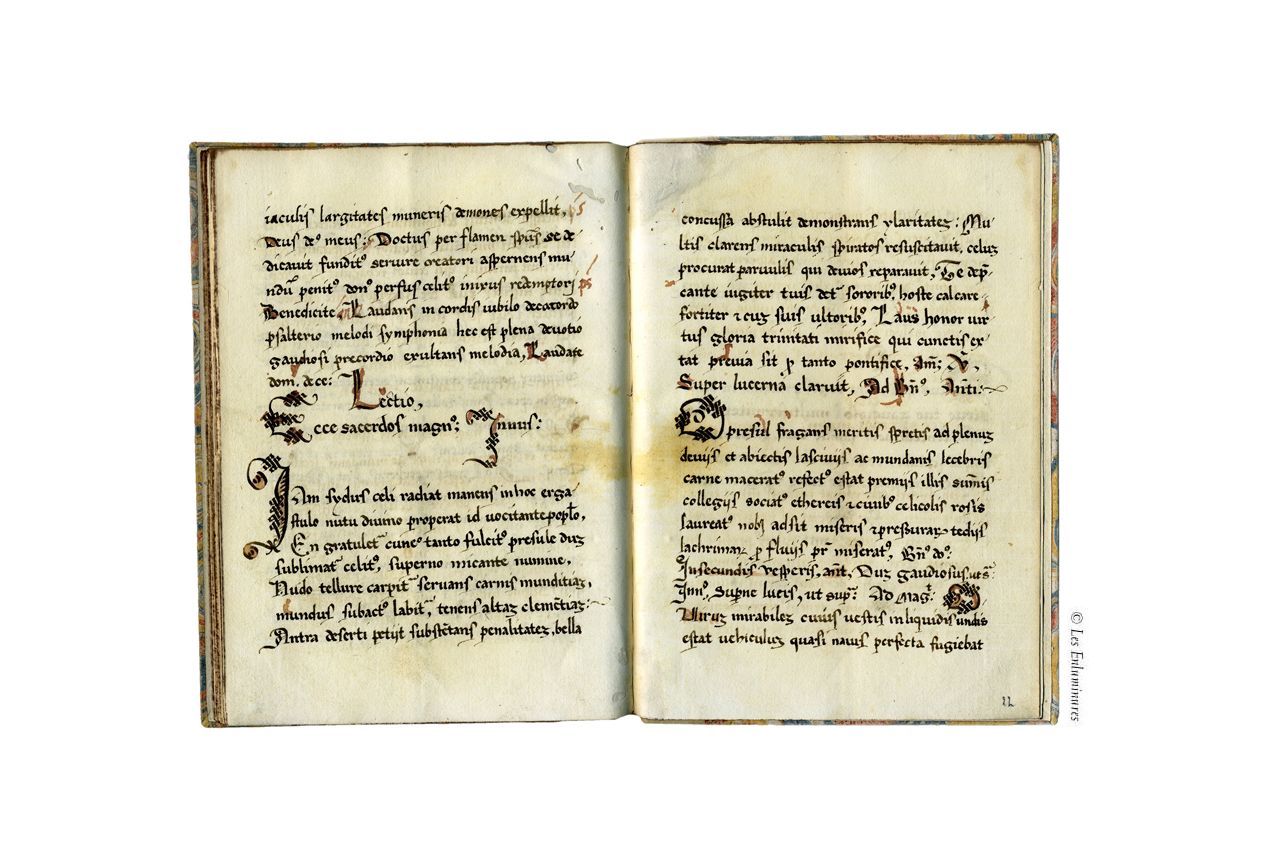 iaculis largitates muneris demones expellit, ps
Deus de⁹ meus: Doctus per flamen sp̄us se de
dicauit fundit⁹ seruire creatori aspernens mu
ndū penit⁹ don⁹ perfus⁹ celit⁹ inixus redemptoris ps
Benedicite Laudans in cordis iubilo decacordo
psalterio melodi symphonia hec est plena deuotio
gaudiosi precordio exultans melodia, Laudate
dom. de ce: Lectio,
Ecce sacerdos magn⁹: Jnuis:
Jam sydus celi radiat maneus in hoc erga
stulo nutu diuino properat id uocitante poplo,
En gratulet cunc⁹ tanto fulcit⁹ presule duz
sublimat̄ celit⁹, superno micante numine,
Nudo tellure carpit̄ seruans carnis munditiaz,
mundus subact⁹ labit̄, tenens altaz clemētiaz:
Antra deserti petijt substētans penalitatez, bella
concussa abstulit demonstrans claritatez: Mu
ltis clarens miraculis spiratos resustitauit, celuz
procurat paruulis qui deuios reparauit, Te dep̄
cante iugiter tuis det⁹ sororib⁹, hoste calcare
fortiter ⁊ cuz suis ultorib⁹, Laus honor uir
tus gloria trinitati mirifice qui cunctis ex
tat preuia sit ꝓ tanto pontifice, Am̄: V,
Super lucernā claruit, Ad Bn̄⁹, Anti:
O presul fragans meritis spretis ad plenuz
deuijs et abiectis lasciuijs ac mundanis lecebris
carne macerat⁹ refect⁹ estat premijs illis sum̄is
collegijs sociat⁹ ethereis ⁊ ciuib⁹ celicolis rosis
laureat⁹ nobis adsit miseris ⁊ pressuraꝝ tedijs
lachrimaꝝ ꝓ fluijs pr̄ miserat⁹, Bn̄⁹ do⁹:
In secundis vesperis, ant, Duz gaudiosus, ut s̄:
Ynn⁹, Superne lucis, ut sup̄: Ad Maḡ:
O Viruz mirabilez cuius uestis in liquidis undis
estat uehiculuz quasi nauis perfecta fugiebat
22
© Les Enluminures